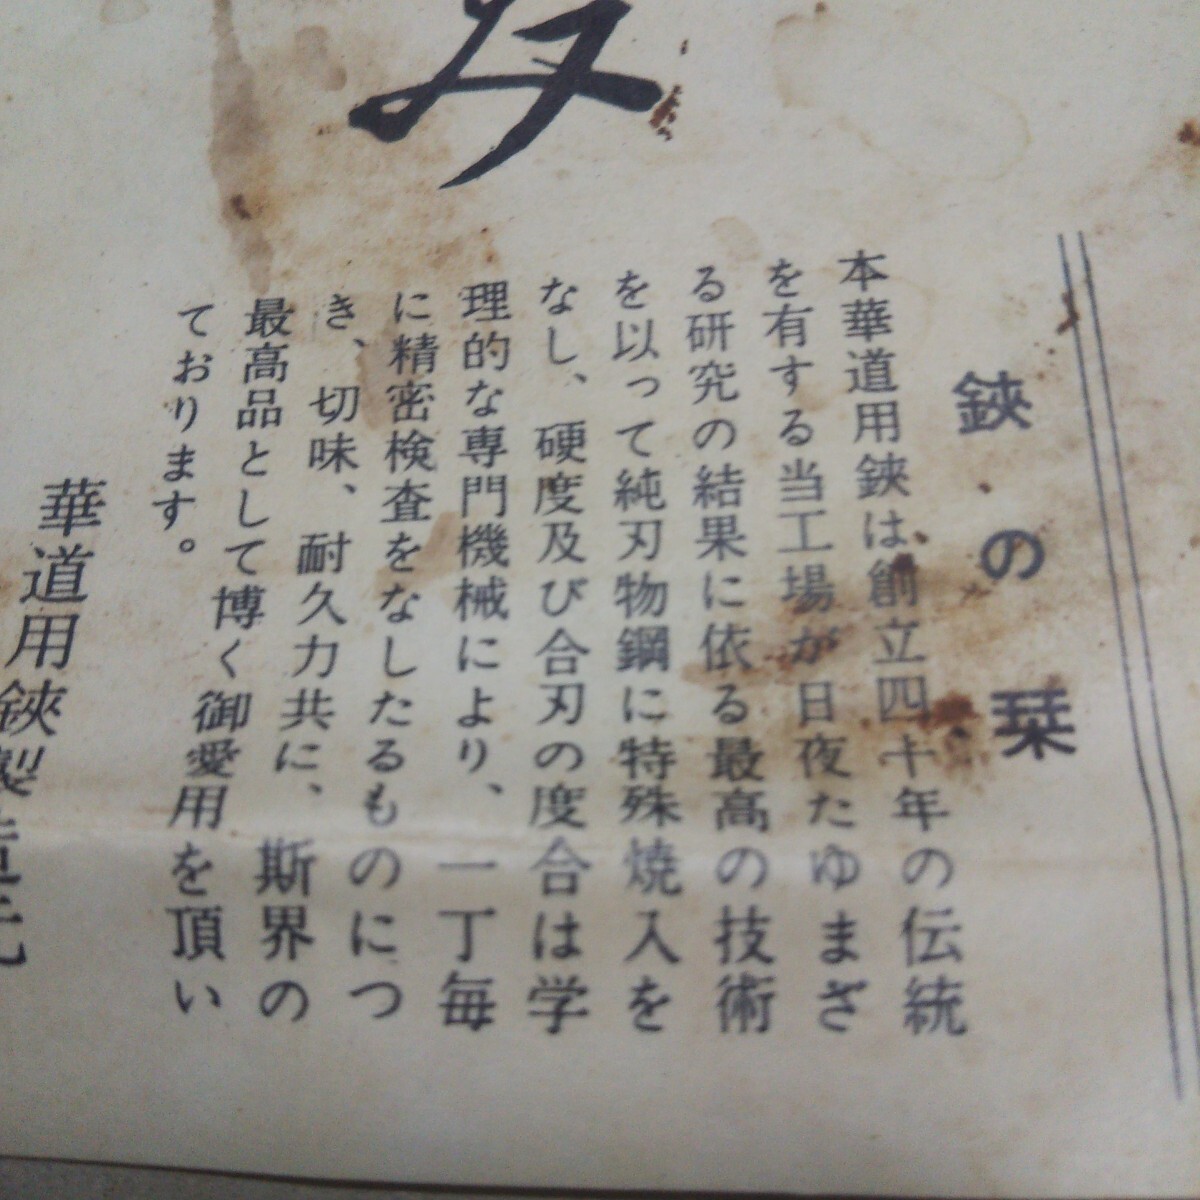 み
鋏の栞
本華道用鋏は創立四十年の伝統
を有する当工場が日夜たゆまざ
る研究の結果に依る最高の技術
を以って純刃物鋼に特殊焼入を
なし、硬度及び合刃の度合は学
理的な専門機械により、一丁毎
に精密検査をなしたるものにつ
き、切味、耐久力共に、斯界の
最高品として博く御愛用を頂い
ております。
華道用鋏製造元